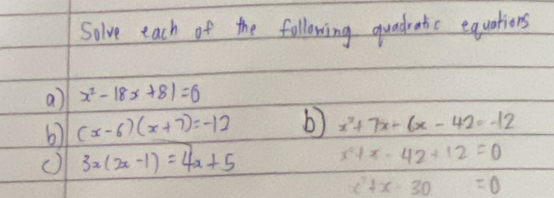 Solve each of the following quadratic equations
a) x² - 18x + 81 = 0
b) (x-6)(x+7) = -12
c) 3x(2x-1) = 4x + 5
b) x² + 7x - 6x - 42 = -12
x² + x - 42 + 12 = 0
x² + x - 30 = 0